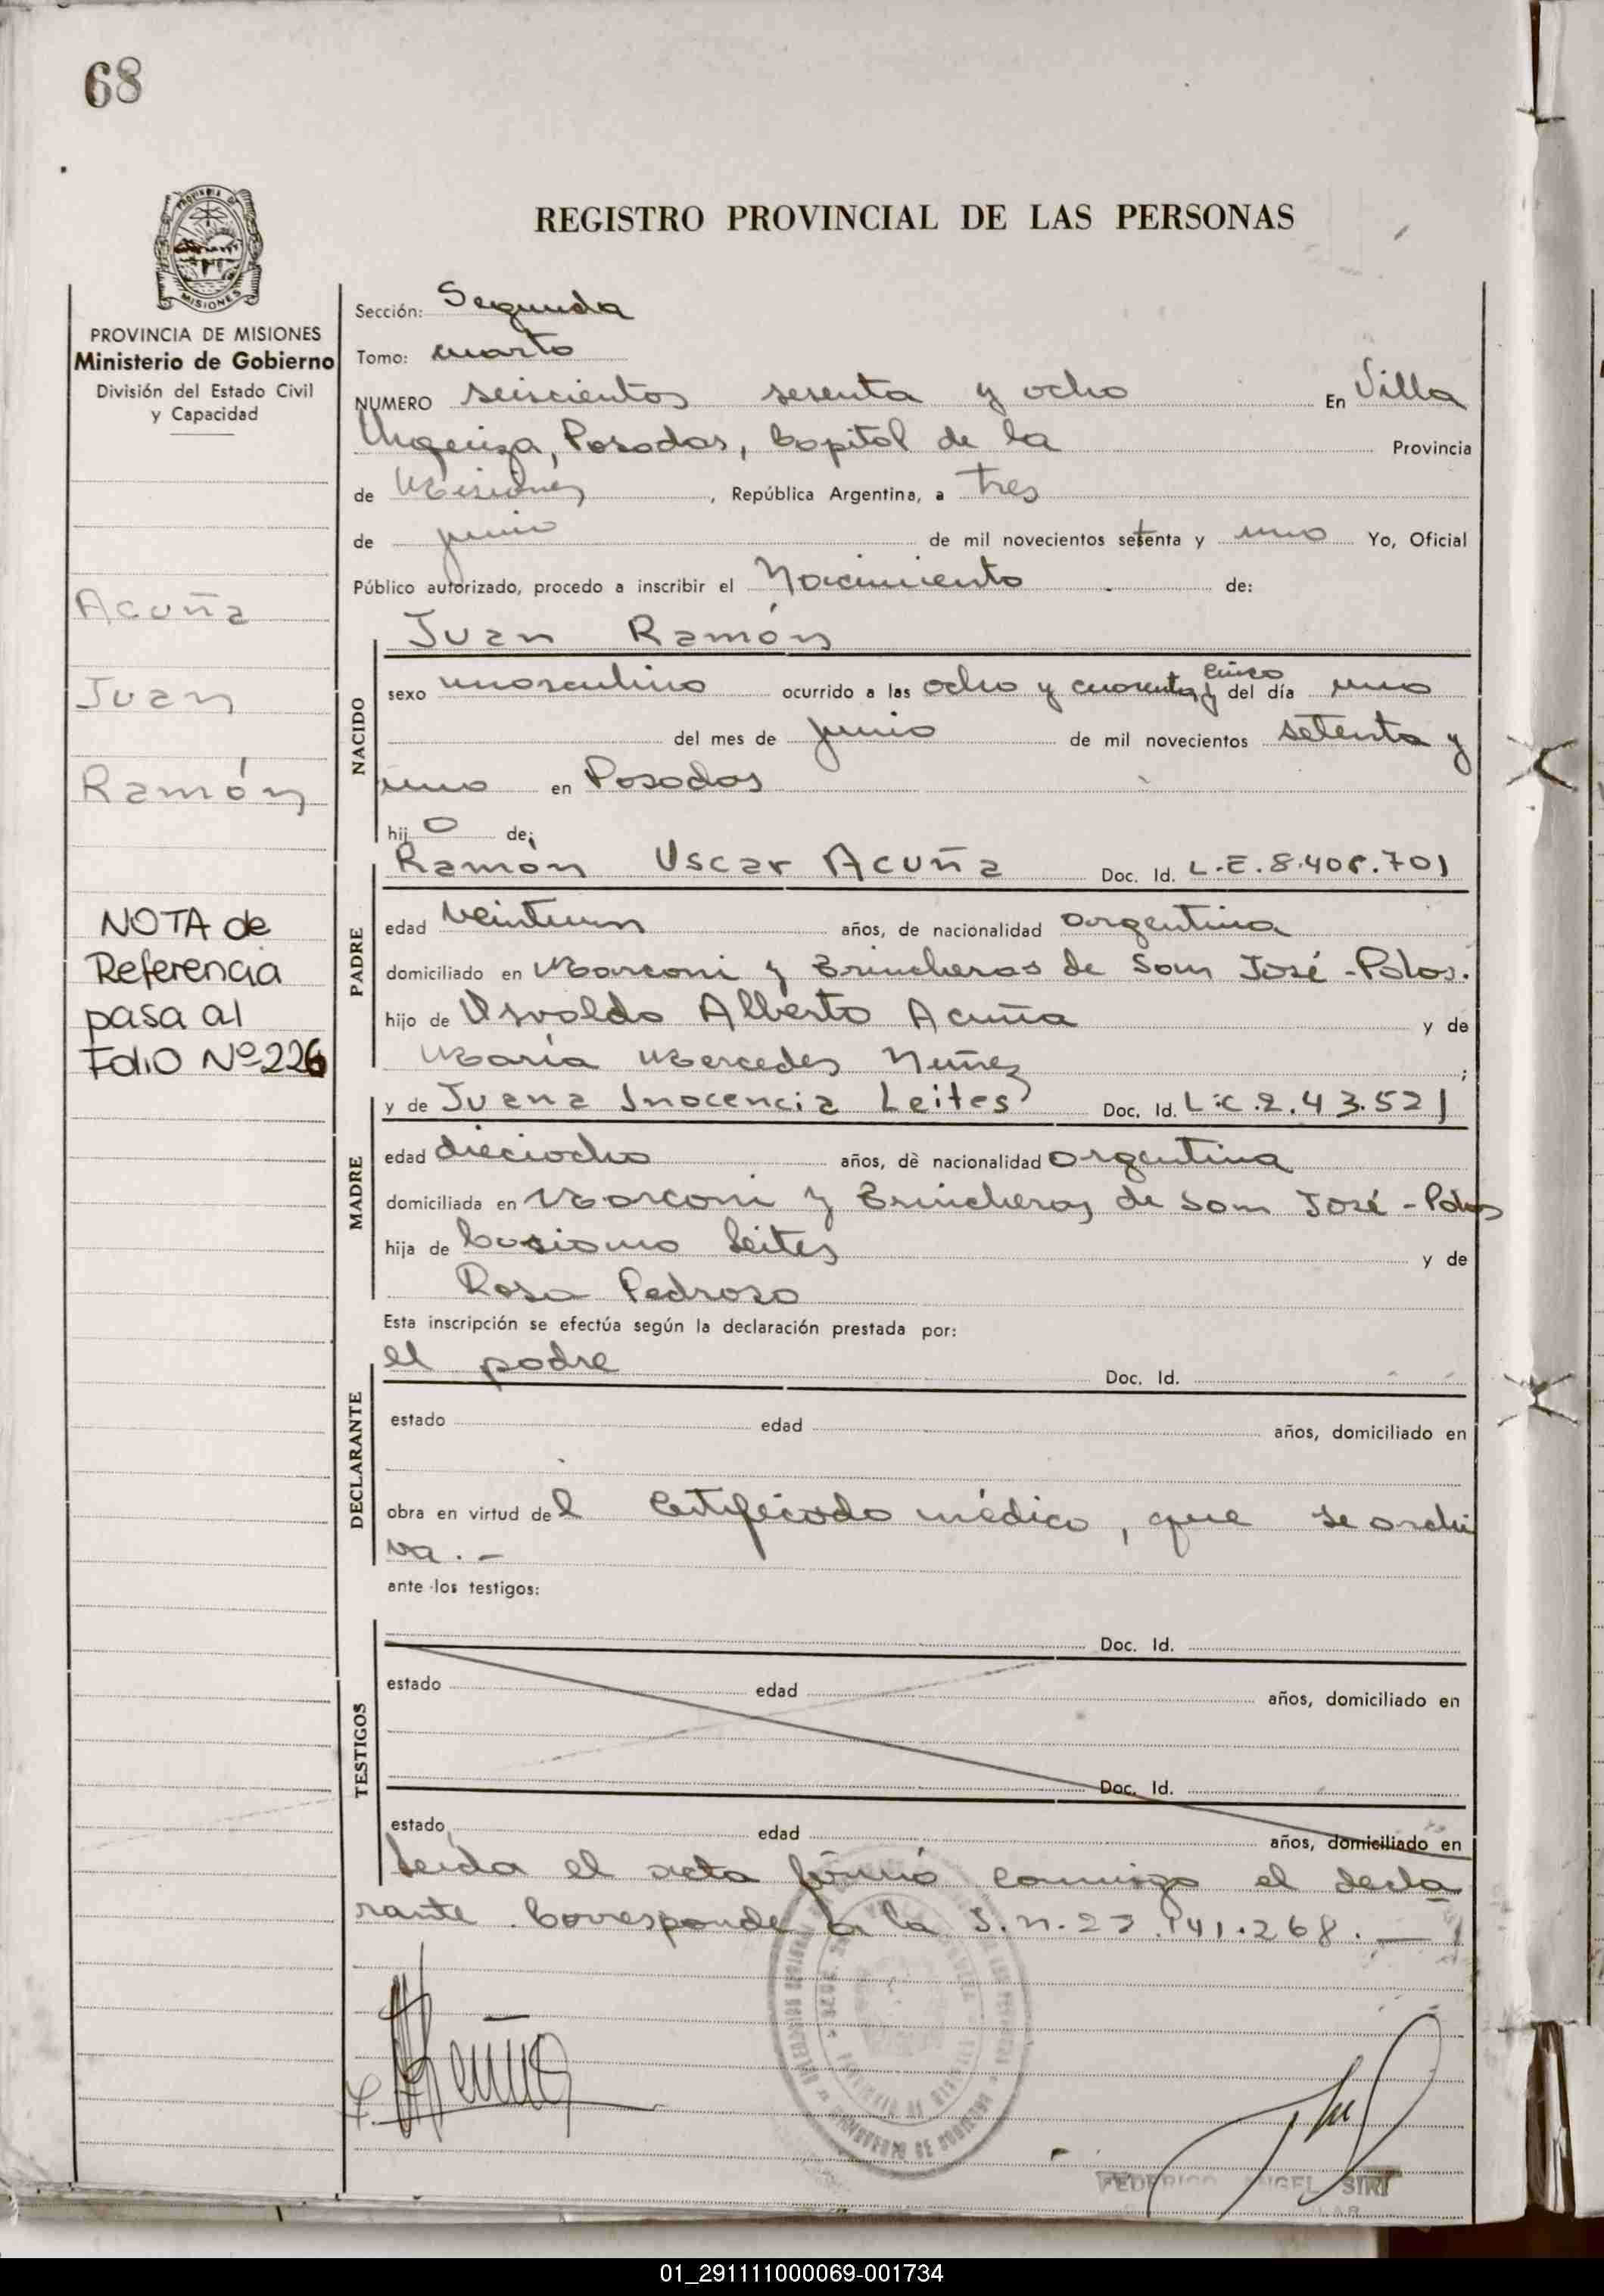 68
PROVINCIA DE
MISIONES
PROVINCIA DE MISIONES
Ministerio de Gobierno
División del Estado Civil
y Capacidad
Acuña
Juan
Ramón
NOTA de
Referencia
pasa al
Folio Nº 226
REGISTRO PROVINCIAL DE LAS PERSONAS
Sección: Segunda
Tomo: cuarto
NUMERO seiscientos sesenta y ocho En Villa
Urquiza, Posadas, Capital de la Provincia
de Misiones, República Argentina, a tres
de junio de mil novecientos setenta y uno Yo, Oficial
Público autorizado, procedo a inscribir el Nacimiento de:
NACIDO
Juan Ramón
sexo masculino ocurrido a las ocho y cuarenta y cinco del día uno
del mes de junio de mil novecientos setenta y
uno en Posadas
hijo de:
PADRE
Ramón Oscar Acuña Doc. Id. L.E. 8.408.701
edad veintiun años, de nacionalidad argentina
domiciliado en Marconi y Trincheras de San José - Pdas.
hijo de Osvaldo Alberto Acuña y de
María Mercedes Nuñez ;
MADRE
y de Juana Inocencia Leites Doc. Id. L.C.
edad dieciocho años, de nacionalidad argentina
domiciliada en Marconi y Trincheras de San José - Pdas
hija de Casiano Leites y de
Rosa Pedrozo
Esta inscripción se efectúa según la declaración prestada por:
DECLARANTE
el padre Doc. Id.
estado edad años, domiciliado en
obra en virtud del Certificado médico, que se archi
va. -
ante los testigos:
TESTIGOS
Doc. Id.
estado edad años, domiciliado en
Doc. Id.
estado edad años, domiciliado en
Leida el acta firmó conmigo el decla
rante. Corresponde a la
Acuña
FEDERICO ANGEL
01_291111000069-001734